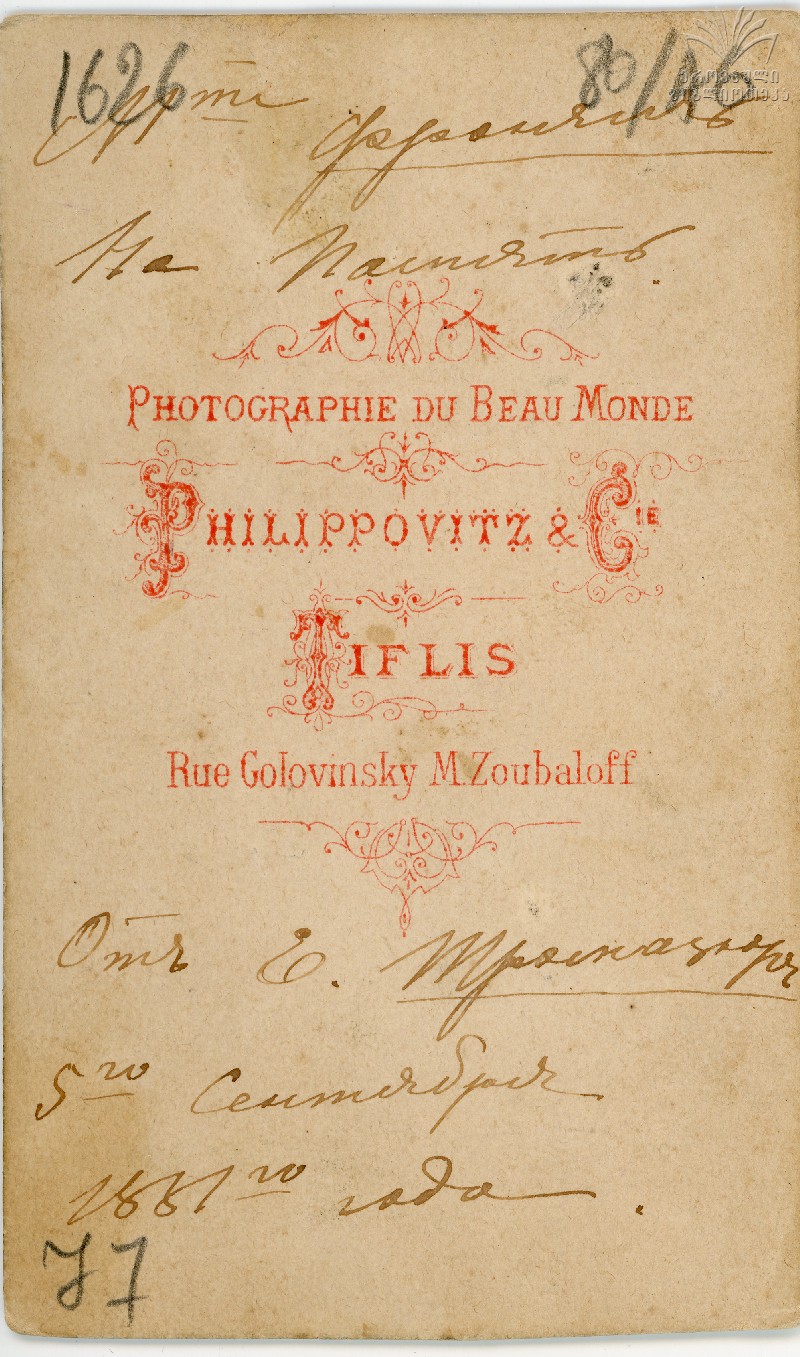 1626 80/16
ეროვნული
ბიბლიოთეკა
На Память.
PHOTOGRAPHIE DU BEAU MONDE
PHILIPPOVITZ & CIE
TIFLIS
Rue Golovinsky M. Zoubaloff
Отъ Е.
5го Сентября
1881го года.
77